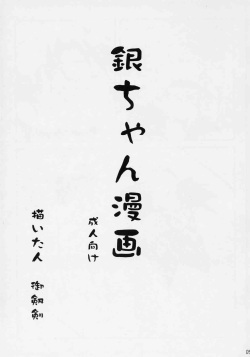 銀ちゃん漫画
成人向け
描いた人